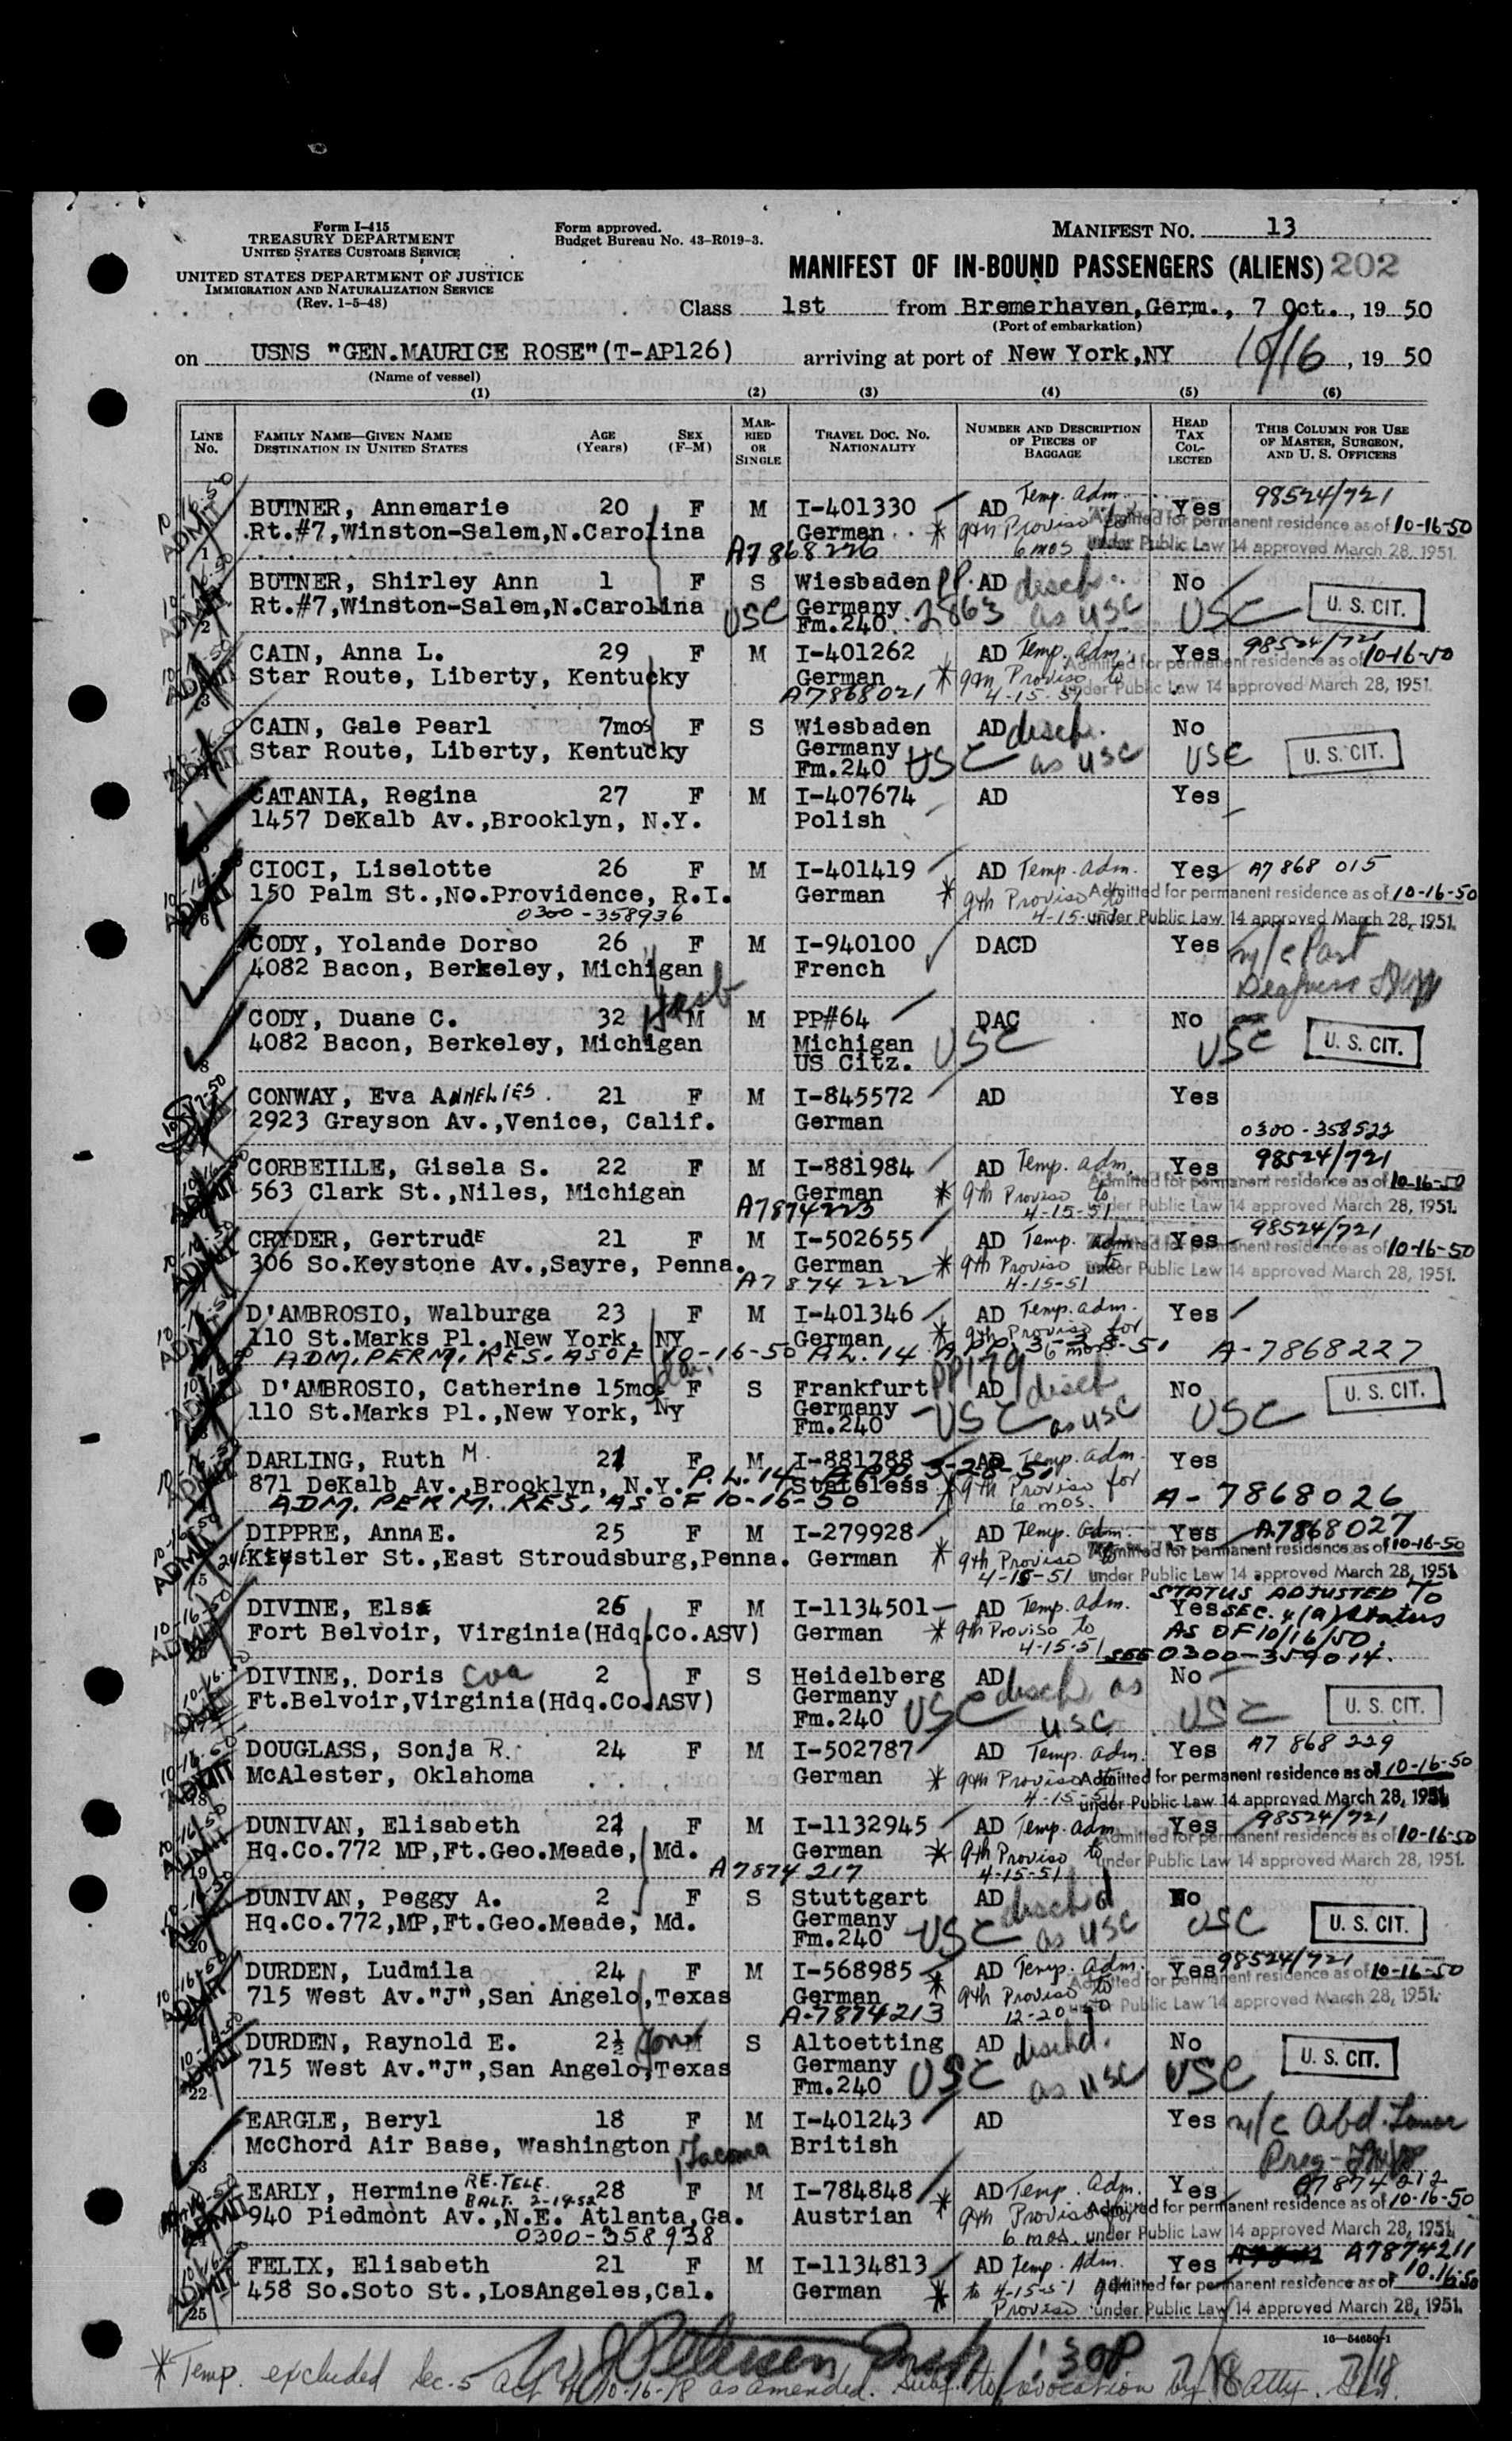 Form I-415
TREASURY DEPARTMENT
UNITED STATES CUSTOMS SERVICE
UNITED STATES DEPARTMENT OF JUSTICE
IMMIGRATION AND NATURALIZATION SERVICE
(Rev. 1-5-48)
Form approved.
Budget Bureau No. 43-R019-3.
MANIFEST NO. 13
MANIFEST OF IN-BOUND PASSENGERS (ALIENS) 202
Class 1st from Bremerhaven,Germ., 7 Oct., 1950
(Port of embarkation)
on USNS "GEN.MAURICE ROSE"(T-AP126) arriving at port of New York,NY 10/16, 1950
(Name of vessel)
(1) (2) (3) (4) (5) (6)
LINE No. FAMILY NAME—GIVEN NAME DESTINATION IN UNITED STATES AGE (Years) SEX (F-M) MARRIED OR SINGLE TRAVEL DOC. NO. NATIONALITY NUMBER AND DESCRIPTION OF PIECES OF BAGGAGE HEAD TAX COLLECTED THIS COLUMN FOR USE OF MASTER, SURGEON, AND U. S. OFFICERS
BUTNER, Annemarie 20 F M I-401330 AD Temp. adm. Yes 98524/721
Rt.#7,Winston-Salem,N.Carolina German * 9th Proviso for Admitted for permanent residence as of 10-16-50
1 A7868226 6 mos under Public Law 14 approved March 28, 1951.
BUTNER, Shirley Ann 1 F S Wiesbaden PP. AD disch. No
Rt.#7,Winston-Salem,N.Carolina USC Germany 2863 as USC USC U. S. CIT.
2 Fm.240
CAIN, Anna L. 29 F M I-401262 AD Temp. adm. Yes 98524/721
Star Route, Liberty, Kentucky German * 9th Proviso to Admitted for permanent residence as of 10-16-50
3 A7868021 4-15-51 under Public Law 14 approved March 28, 1951.
CAIN, Gale Pearl 7mos F S Wiesbaden AD disch. No
Star Route, Liberty, Kentucky Germany USC as USC USC U. S. CIT.
Fm.240
CATANIA, Regina 27 F M I-407674 AD Yes
1457 DeKalb Av.,Brooklyn, N.Y. Polish
CIOCI, Liselotte 26 F M I-401419 AD Temp. adm. Yes A7 868 015
150 Palm St.,No.Providence, R.I. German * 9th Proviso to Admitted for permanent residence as of 10-16-50
6 0300-358936 4-15- under Public Law 14 approved March 28, 1951.
CODY, Yolande Dorso 26 F M I-940100 DACD Yes m/c Part
4082 Bacon, Berkeley, Michigan French
CODY, Duane C. 32 Husb M M PP#64 DAC No
4082 Bacon, Berkeley, Michigan Michigan USC USC U. S. CIT.
8 US Citz.
CONWAY, Eva ANNELIES. 21 F M I-845572 AD Yes
2923 Grayson Av.,Venice, Calif. German
0300-358522
CORBEILLE, Gisela S. 22 F M I-881984 AD Temp. adm. Yes 98524/721
563 Clark St.,Niles, Michigan German * 9th Proviso to Admitted for permanent residence as of 10-16-50
A7874223 4-15-51 under Public Law 14 approved March 28, 1951.
CRYDER, Gertrude 21 F M I-502655 AD Temp. adm. Yes 98524/721
306 So.Keystone Av.,Sayre, Penna. German * 9th Proviso to Admitted for permanent residence as of 10-16-50
A7874222 4-15-51 under Public Law 14 approved March 28, 1951.
D'AMBROSIO, Walburga 23 F M I-401346 AD Temp. adm. Yes
110 St.Marks Pl.,New York, NY German * 9th Proviso for
ADM. PERM. RES. AS OF 10-16-50 P.L. 14 APP. 3-28-51 6 mos. A-7868227
D'AMBROSIO, Catherine 15mos dau. F S Frankfurt PP179 AD disch No
110 St.Marks Pl.,New York, NY Germany USC as USC USC U. S. CIT.
Fm.240
DARLING, Ruth M. 21 F M I-881788 AD Temp. adm. Yes
871 DeKalb Av.,Brooklyn, N.Y. P.L.14 APP. 3-28-51 Stateless * 9th Proviso for
ADM. PERM. RES. AS OF 10-16-50 6 mos. A-7868026
DIPPRE, Anna E. 25 F M I-279928 AD Temp. adm. Yes A7868027
Kistler St.,East Stroudsburg,Penna. German * 9th Proviso to Admitted for permanent residence as of 10-16-50
15 4-15-51 under Public Law 14 approved March 28, 1951
DIVINE, Else 26 F M I-1134501 AD Temp. adm. Yes STATUS ADJUSTED TO SEC. 4(a) status
Fort Belvoir, Virginia(Hdq.Co.ASV) German * 9th Proviso to AS OF 10/16/50.
4-15-51 SEE 0300-359014.
DIVINE, Doris Eva 2 F S Heidelberg AD disch as No
Ft.Belvoir,Virginia(Hdq.Co.ASV) Germany USC USC USC U. S. CIT.
Fm.240
DOUGLASS, Sonja R. 24 F M I-502787 AD Temp. adm. Yes A7 868 229
McAlester, Oklahoma German * 9th Proviso to Admitted for permanent residence as of 10-16-50
18 4-15-51 under Public Law 14 approved March 28, 1951
DUNIVAN, Elisabeth 22 F M I-1132945 AD Temp. adm Yes 98524/721
Hq.Co.772 MP,Ft.Geo.Meade, Md. German * 9th Proviso to Admitted for permanent residence as of 10-16-50
19 A7874217 4-15-51 under Public Law 14 approved March 28, 1951.
DUNIVAN, Peggy A. 2 F S Stuttgart AD disch'd No
Hq.Co.772,MP,Ft.Geo.Meade, Md. Germany USC as USC USC U. S. CIT.
20 Fm.240
DURDEN, Ludmila 24 F M I-568985 AD Temp. adm. Yes 98524/721
715 West Av."J",San Angelo,Texas German * 9th Proviso to Admitted for permanent residence as of 10-16-50
A-7874213 12-20-50 under Public Law 14 approved March 28, 1951.
DURDEN, Raynold E. 2½ son M S Altoetting AD disch'd. No
715 West Av."J",San Angelo,Texas Germany USC as USC USC U. S. CIT.
22 Fm.240
EARGLE, Beryl 18 F M I-401243 AD Yes m/c Abd.
McChord Air Base, Washington Tacoma British Preg-
23
EARLY, Hermine RE.TELE. BALT. 2-19-52 28 F M I-784848 AD Temp. adm. Yes A7874212
940 Piedmont Av.,N.E. Atlanta,Ga. Austrian * 9th Proviso for Admitted for permanent residence as of 10-16-50
0300-358938 6 mos. under Public Law 14 approved March 28, 1951,
FELIX, Elisabeth 21 F M I-1134813 AD Temp. Adm. Yes A7874211
458 So.Soto St.,LosAngeles,Cal. German * to 4-15-51 9th Admitted for permanent residence as of 10-16-50
25 Proviso under Public Law 14 approved March 28, 1951.
16—54650-1
Petersen Insp 1:30P
* Temp. excluded Sec. 5 Act of 10-16-18 as amended. Subj. to revocation by Atty. Gen. 7/18